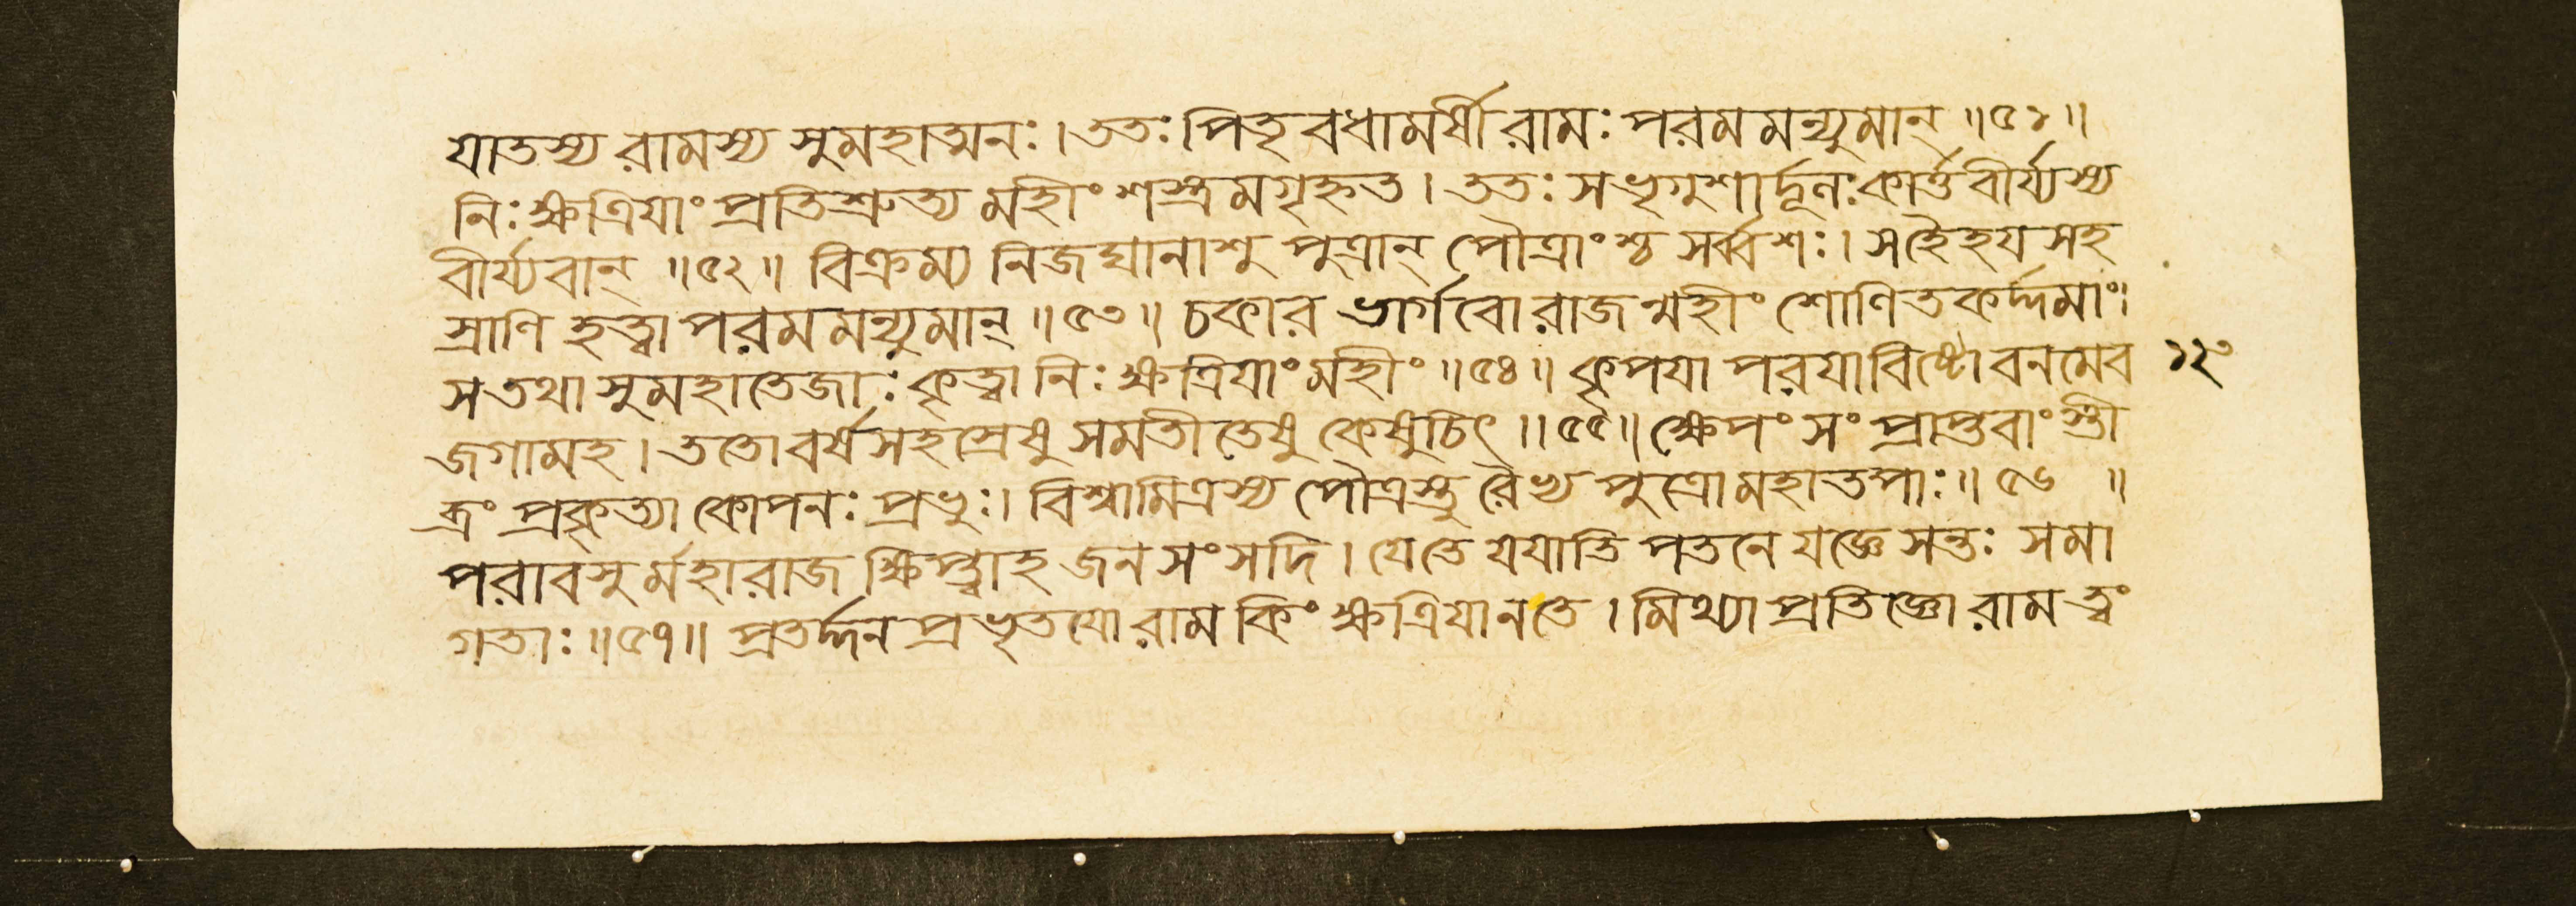 যাতস্য রামস্য সুমহাত্মনঃ। ততঃ পিতৃবধামর্ষী রামঃ পরমমন্যুমান্ ॥৫১॥
নিঃক্ষত্রিযাং প্রতিশ্রুত্য মহীং শস্ত্রমগৃহ্নত। ততঃ সভৃগুশার্দ্দূলঃ কার্ত্তবীর্য্যস্য
বীর্য্যবান্ ॥৫২॥ বিক্রম্য নিজঘানাশু পুত্রান্ পৌত্রাংশ্চ সর্ব্বশঃ। সহৈহযসহ
স্রাণি হত্বা পরমমন্যুমান্ ॥৫৩॥ চকার ভার্গবো রাজন্মহীং শোণিতকর্দ্দমাং।
স তথা সুমহাতেজাঃ কৃত্বা নিঃক্ষত্রিযাং মহীং ॥৫৪॥ কৃপযা পরযাবিষ্টো বনমেব
জগামহ। ততো বর্ষসহস্রেষু সমতীতেষু কেষুচিৎ ॥৫৫॥ ক্ষেপং সংপ্রাপ্তবাংস্তী
ব্রং প্রকৃত্যা কোপনঃ প্রভুঃ। বিশ্বামিত্রস্য পৌত্রস্তু রৈভ্য পুত্রো মহাতপাঃ॥ ৫৬ ॥
পরাবসুর্মহারাজ ক্ষিপ্ত্বাহ জনসংসদি। যেতে যযাতি পতনে যজ্ঞে সন্তঃ সমা
গতাঃ॥৫৭॥ প্রতর্দ্দন প্রভৃতযো রাম কিং ক্ষত্রিযানতে। মিথ্যাপ্রতিজ্ঞো রাম ত্বং
১২৩